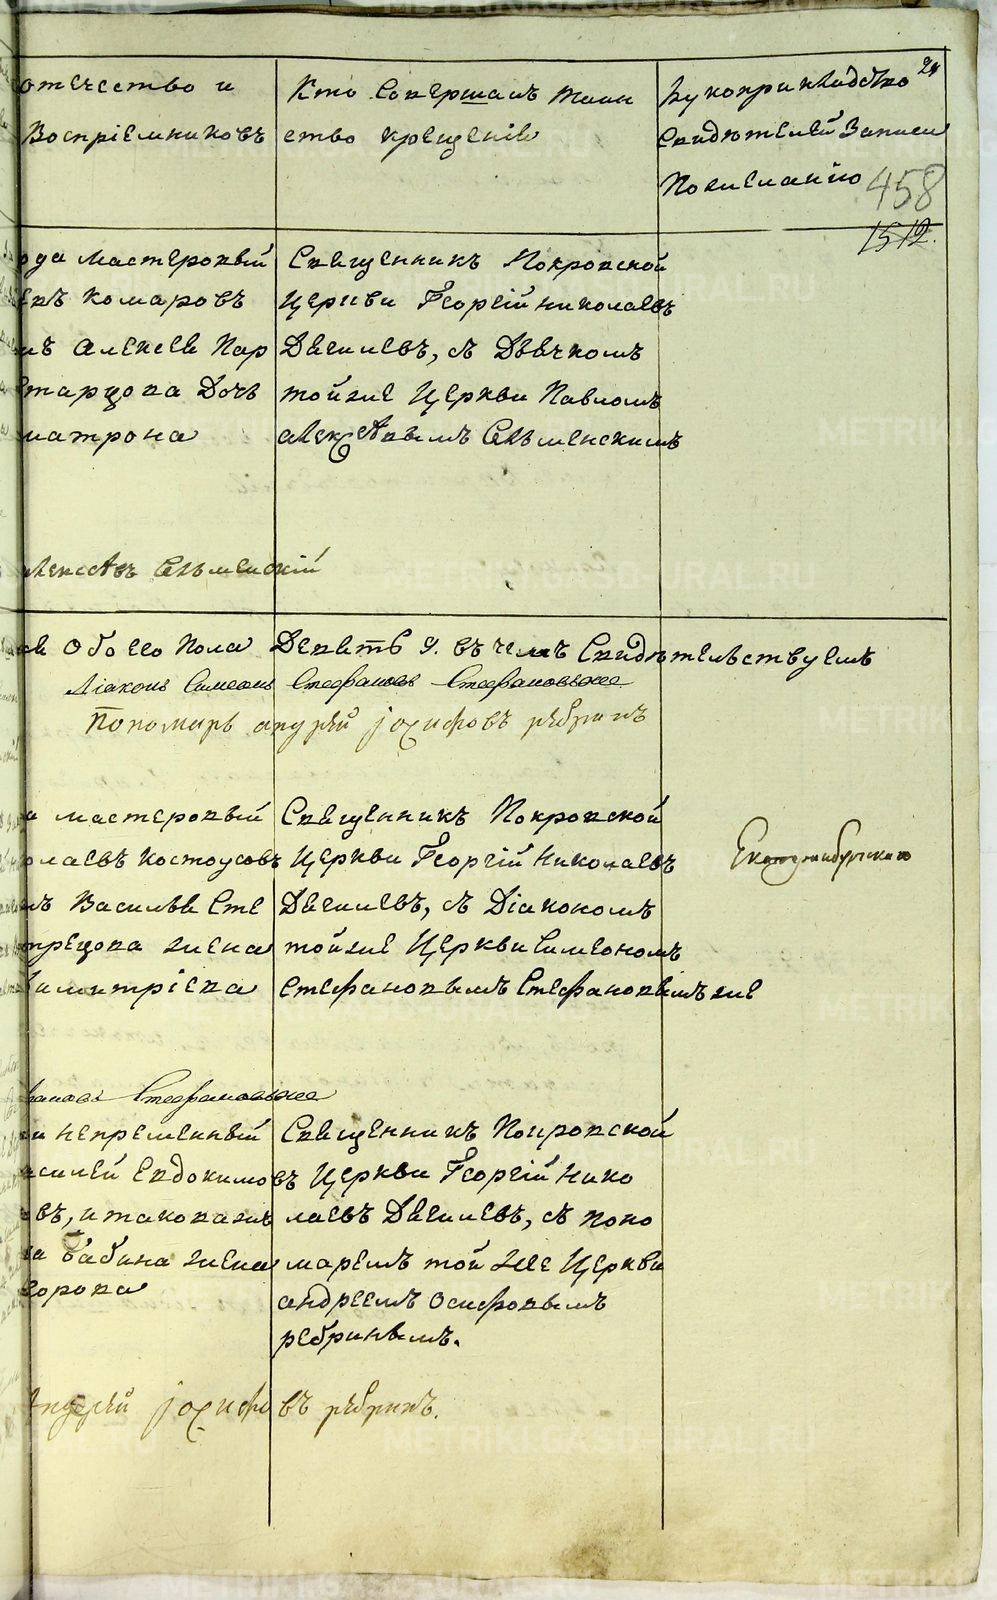 отечество и
Воспріемниковъ
Кто Совершалъ таин
ство крещенія
Рукоприкладство
Свидѣтелей Записи
По желанію
24
458
1512.
ода мастеровый
въ комаровъ
Священникъ Покровской
Церкви Георгій Николаевъ
Алексѣева Пар
Старцова Дочь
матрона
Дягилевъ, съ Дьячкомъ
тойже Церкви Павломъ
алексѣевымъ Сельменскимъ
алексѣевъ Сельменскій
Обоего Пола Девять 9. въ чемъ Свидѣтельствуемъ
Діаконъ Симеонъ Стефановъ Стефановыхже
Пономарь андрей іосифовъ рѣбринъ
мастеровый
олаевъ Костоусовъ
Василья Сте
трецова жена
Димитріева
Священникъ Покровской
Церкви Георгій Николаевъ
Дягилевъ, съ Діакономъ
тойже Церкви Симеономъ
Стефановымъ Стефановымъ же
Екатеринбургскаго
Стефановыхже
непремѣнный
асилей Евдокимовъ
въ, и таковажъ
бабина жена
Священникъ Покровской
Церкви Георгій Нико
лаевъ Дягилевъ, съ поно
маремъ той же Церкви
андреемъ осифовымъ
ребринымъ.
Андрей іосифовъ рѣбринъ.
METRIKI.GASO-URAL.RU